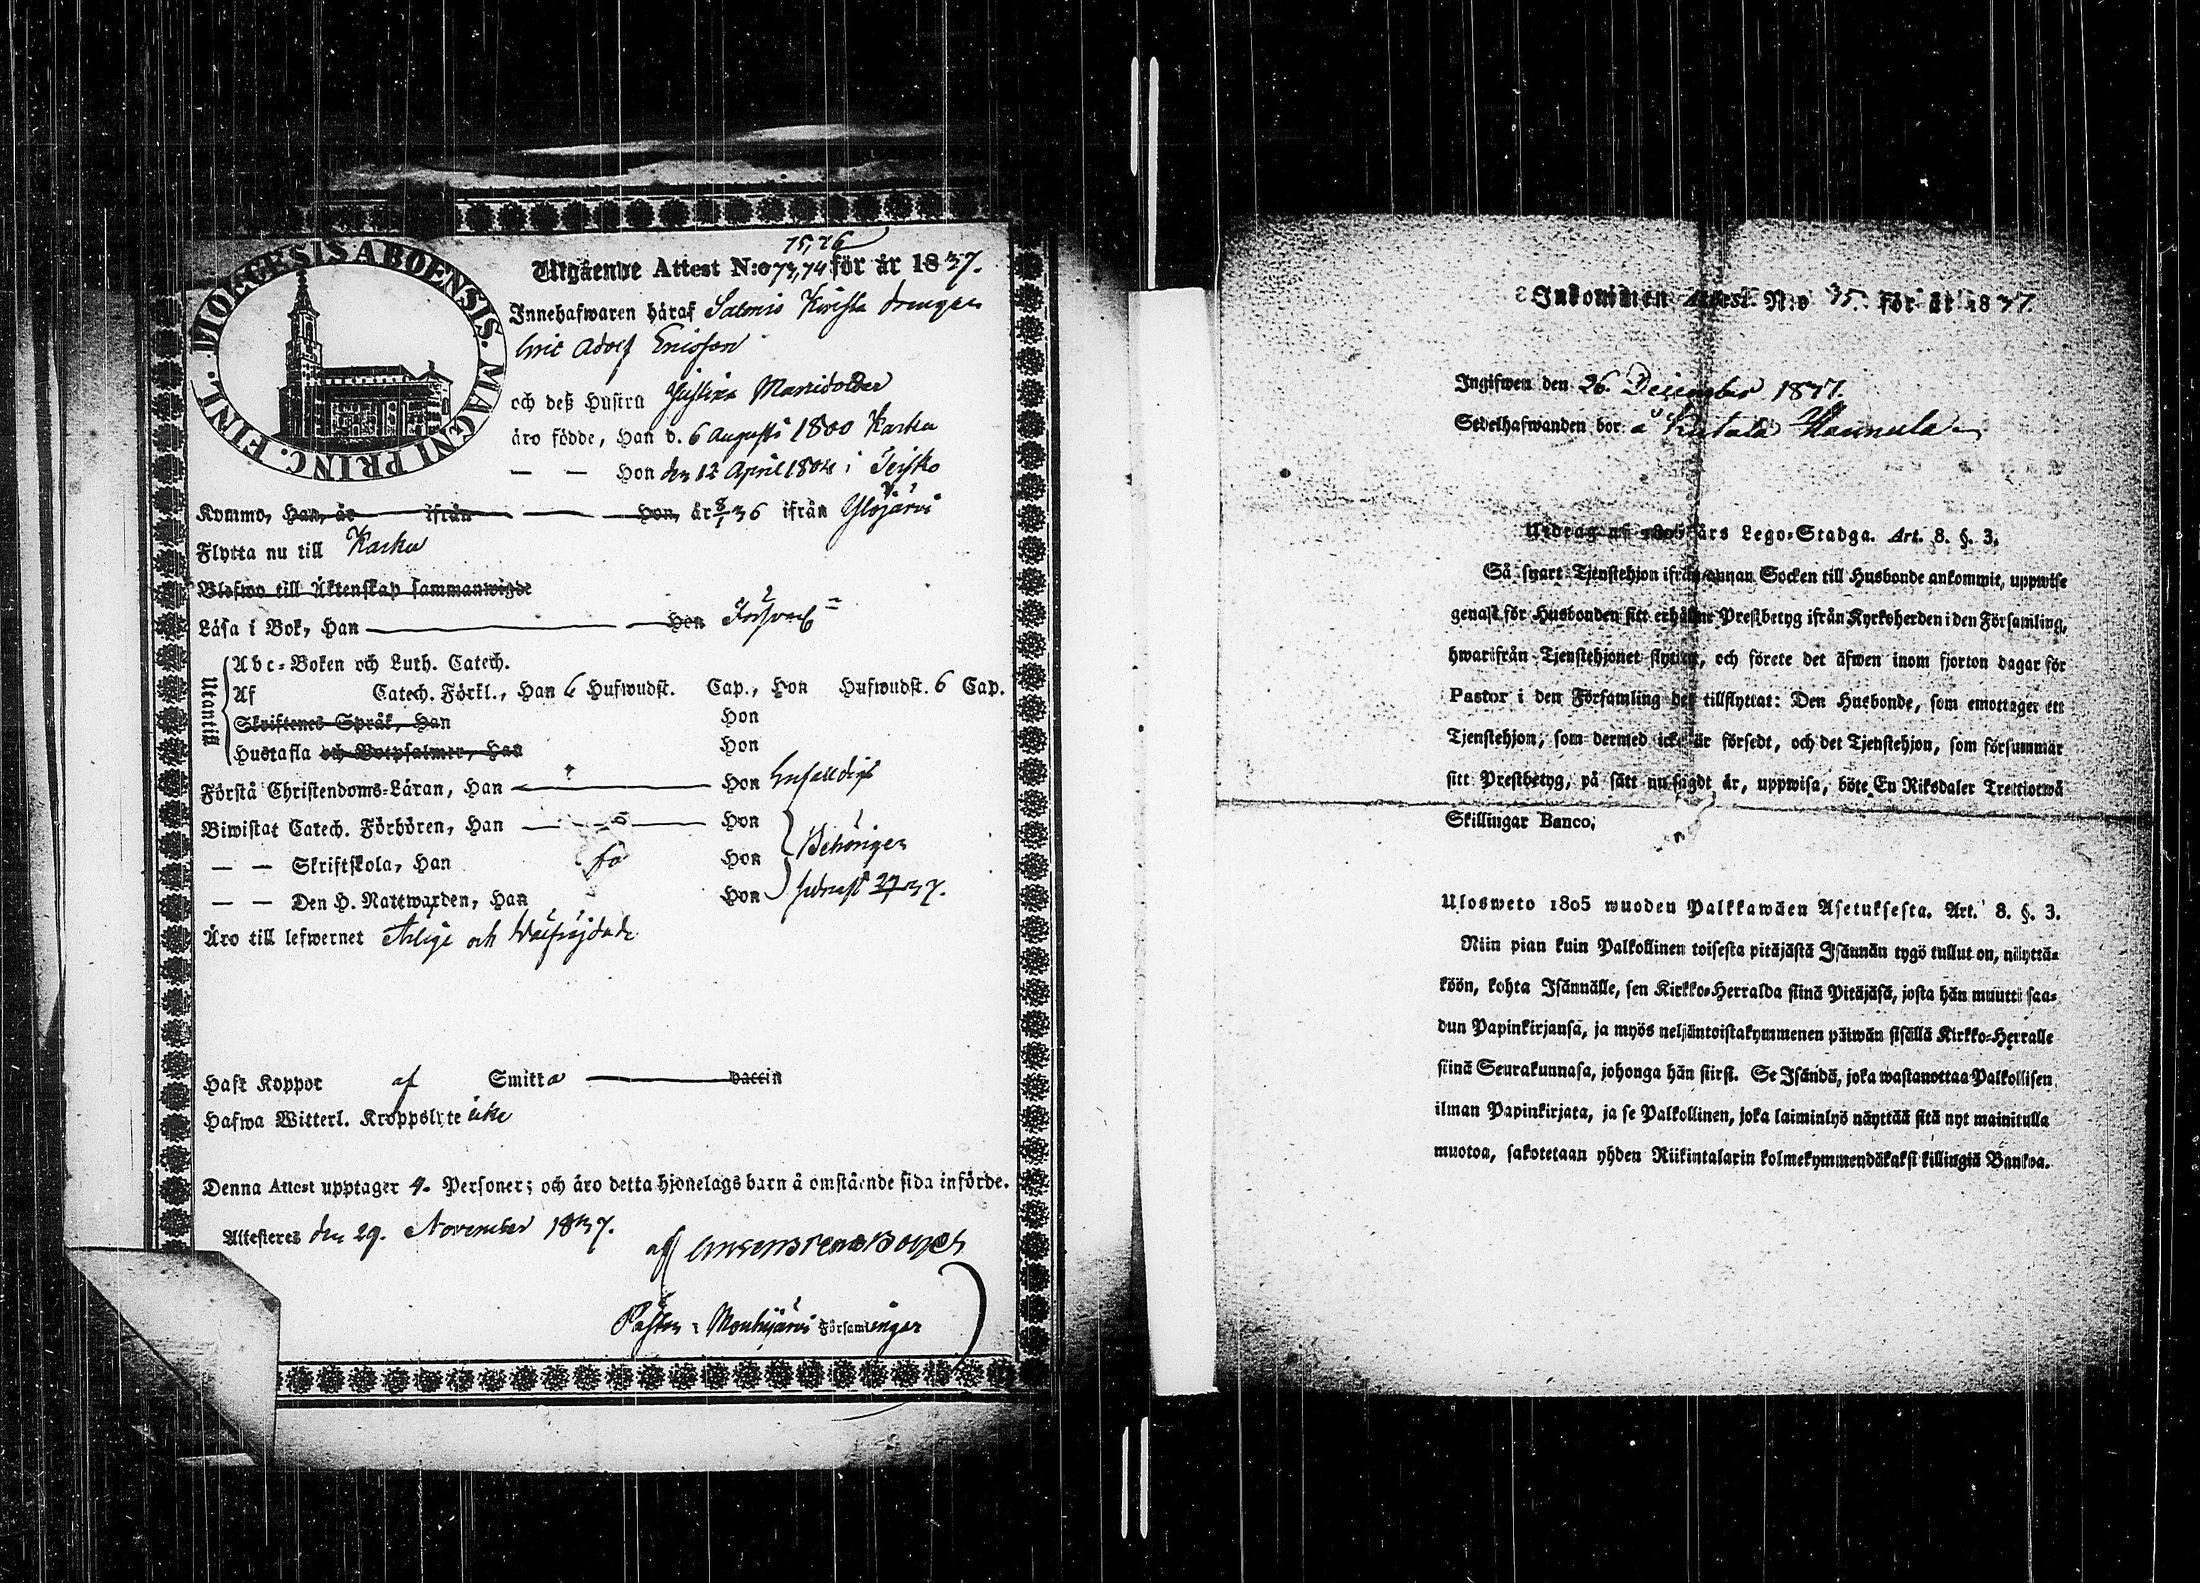 DIOECESIS ABOENSIS. MAGNI PRINC. FINL.
75, 76
Utgående Attest N:o 73, 74 för år 1837.
Innehafwaren häraf Salmis Kwista drängen
Eric Adolf Ericsson
och deß Hustra Justina Mattsdotter
äro födde, Han d. 6 Augusti 1800 Karku
— — Hon den 12 April 1804 i Teisko
Kommo, Han, år ifrån — Hon, år 3/1 36 ifrån Ylöjärvi
Flytta nu till Karku
Blefwo till Äktenskap sammanwigde
Läsa i Bok, Han — Hon Försvarl
Utantill
Abc-Boken och Luth. Catech.
Af Catech. Förkl., Han 6 Hufwudst. Cap., Hon Hufwudst. 6 Cap.
Skriftenes Språk, Han Hon
Hustafla och Botpsalmer, Han Hon
Förstå Christendoms-Läran, Han — Hon Enfaldigt
Biwistat Catech. Förhören, Han — Hon
— — Skriftskola, Han Hon Behörigen
— — Den H. Nattwarden, Han Hon senast 37.
Äro till lefwernet Ärlige och Wälfrejdade
Haft Koppor af Smitta — vaccin
Hafwa Witterl. Kroppslyte icke
Denna Attest upptager 4. Personer; och äro detta hjonelags barn å omstående sida införde.
Attesteres den 29. November 1837.
af
Pastor i Mouhijärvi Församlingar
Inkommen Attest N:o 35. för år 1837.
Ingifwen den 26. December 1837.
Sedelhafwanden bor å Kutala Hannula
Utdrag af 1805 års Lego-Stadga. Art. 8. §. 3.
Så snart Tjenstehjon ifrån annan Socken till Husbonde ankommit, uppwise
genast för Husbonden sitt erhållne Prestbetyg ifrån Kyrkoherden i den Församling,
hwarifrån Tjenstehjonet flyttat, och förete det äfwen inom fjorton dagar för
Pastor i den Församling det tillflyttat: Den Husbonde, som emottager ett
Tjenstehjon, som dermed icke är försedt, och det Tjenstehjon, som försummar
sitt Prestbetyg, på sätt nu sagdt är, uppwisa, böte En Riksdaler Trettiotwå
Skillingar Banco.
Ulosweto 1805 wuoden Palkkawäen Asetuksesta. Art. 8. §. 3.
Niin pian kuin Palkollinen toisesta pitäjästä Isännän tygö tullut on, näyttä-
köön, kohta Isännälle, sen Kirkko-Herralda siinä Pitäjäsä, josta hän muutti saa-
dun Papinkirjansa, ja myös neljäntoistakymmenen päiwän sisällä Kirkko-Herralle
siinä Seurakunnasa, johonga hän siirsi. Se Isändä, joka wastanottaa Palkollisen
ilman Papinkirjata, ja se Palkollinen, joka laiminlyö näyttää sitä nyt mainitulla
muotoa, sakotetaan yhden Riikintalarin kolmekymmendäkaksi killingiä Bankoa.